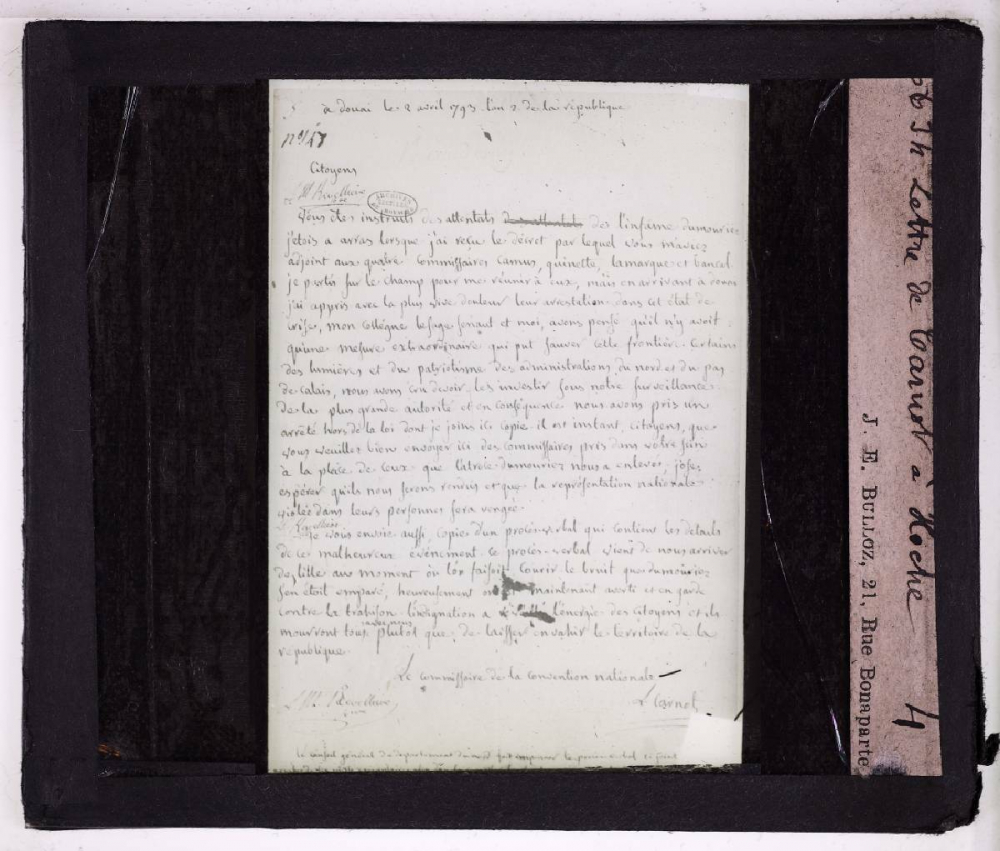 à douai le 2 avril 1793 l'an 2 de la république
Citoyens
ARCHIVES
Vous êtes instruits des attentats de l'infame dumouriez
j'etois a arras lorsque j'ai reçu le décret par lequel vous m'avez
adjoint aux quatre commissaires camus, quinette, lamarque et bancal
je partis sur le champ pour me réunir à eux, mais en arrivant à douai
j'ai appris avec la plus vive douleur leur arrestation. dans cet état de
crise, mon collégue lesage senaut et moi, avons pensé qu'il n'y avoit
qu'une mesure extraordinaire qui put sauver cette frontière. Certains
des lumières et du patriotisme des administrations du nord et du pas
de calais, nous avons cru devoir les investir sous notre surveillance
de la plus grande autorité et en conséquence nous avons pris un
arrêté hors de la loi dont je joins ici copie il est instant, citoyens, que
vous veuilliez bien envoyer ici des commissaires pris dans votre sein
à la place de ceux que l'atroce dumouriez nous a enlevés, j'ose
espérer qu'ils nous seront rendus et que la représentation nationale
violée dans leurs personnes sera vengée.
je vous envoie aussi copie d'un procès verbal qui contient les details
de ce malheureux evénement. ce procès-verbal vient de nous arriver
de lille au moment où l'on faisoit courir le bruit que dumouriez
s'en étoit emparé, heureusement maintenant averti et en garde
contre la trahison. l'indignation a l'énergie des citoyens et ils
mourront tous plutot que de laisser envahir le territoire de la
république.
Le commissaire de la convention nationale
L Carnot
le conseil général du departement
Lettre de Carnot à Hoche
4
J. E. BULLOZ, 21, Rue Bonaparte